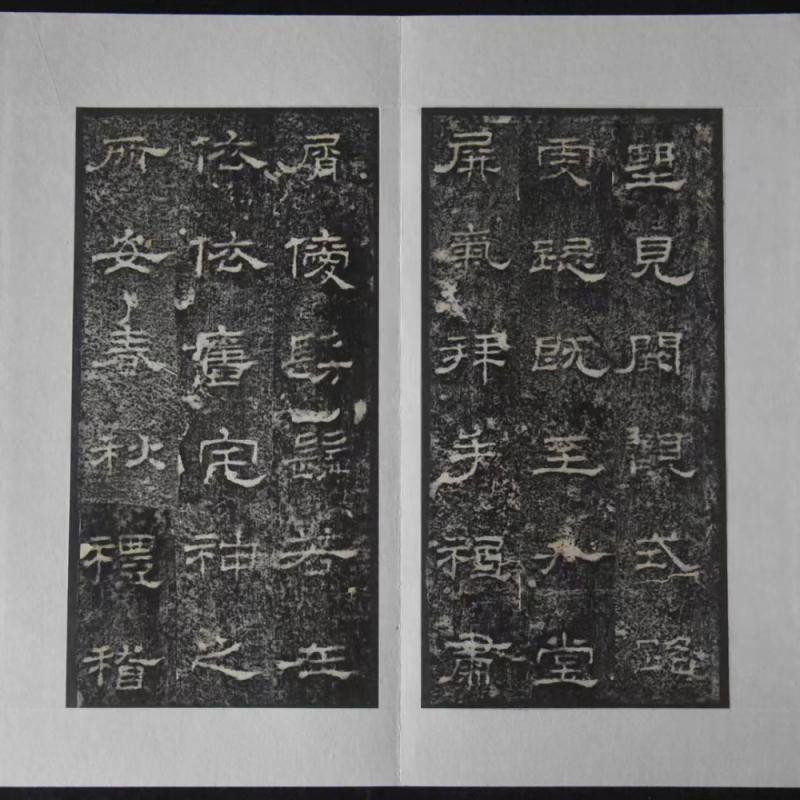 望見闕觀式路
虔跽既至升堂
屏氣拜手祗肅
屑僾髣髴若在
依依舊宅神之
所安春秋復稽